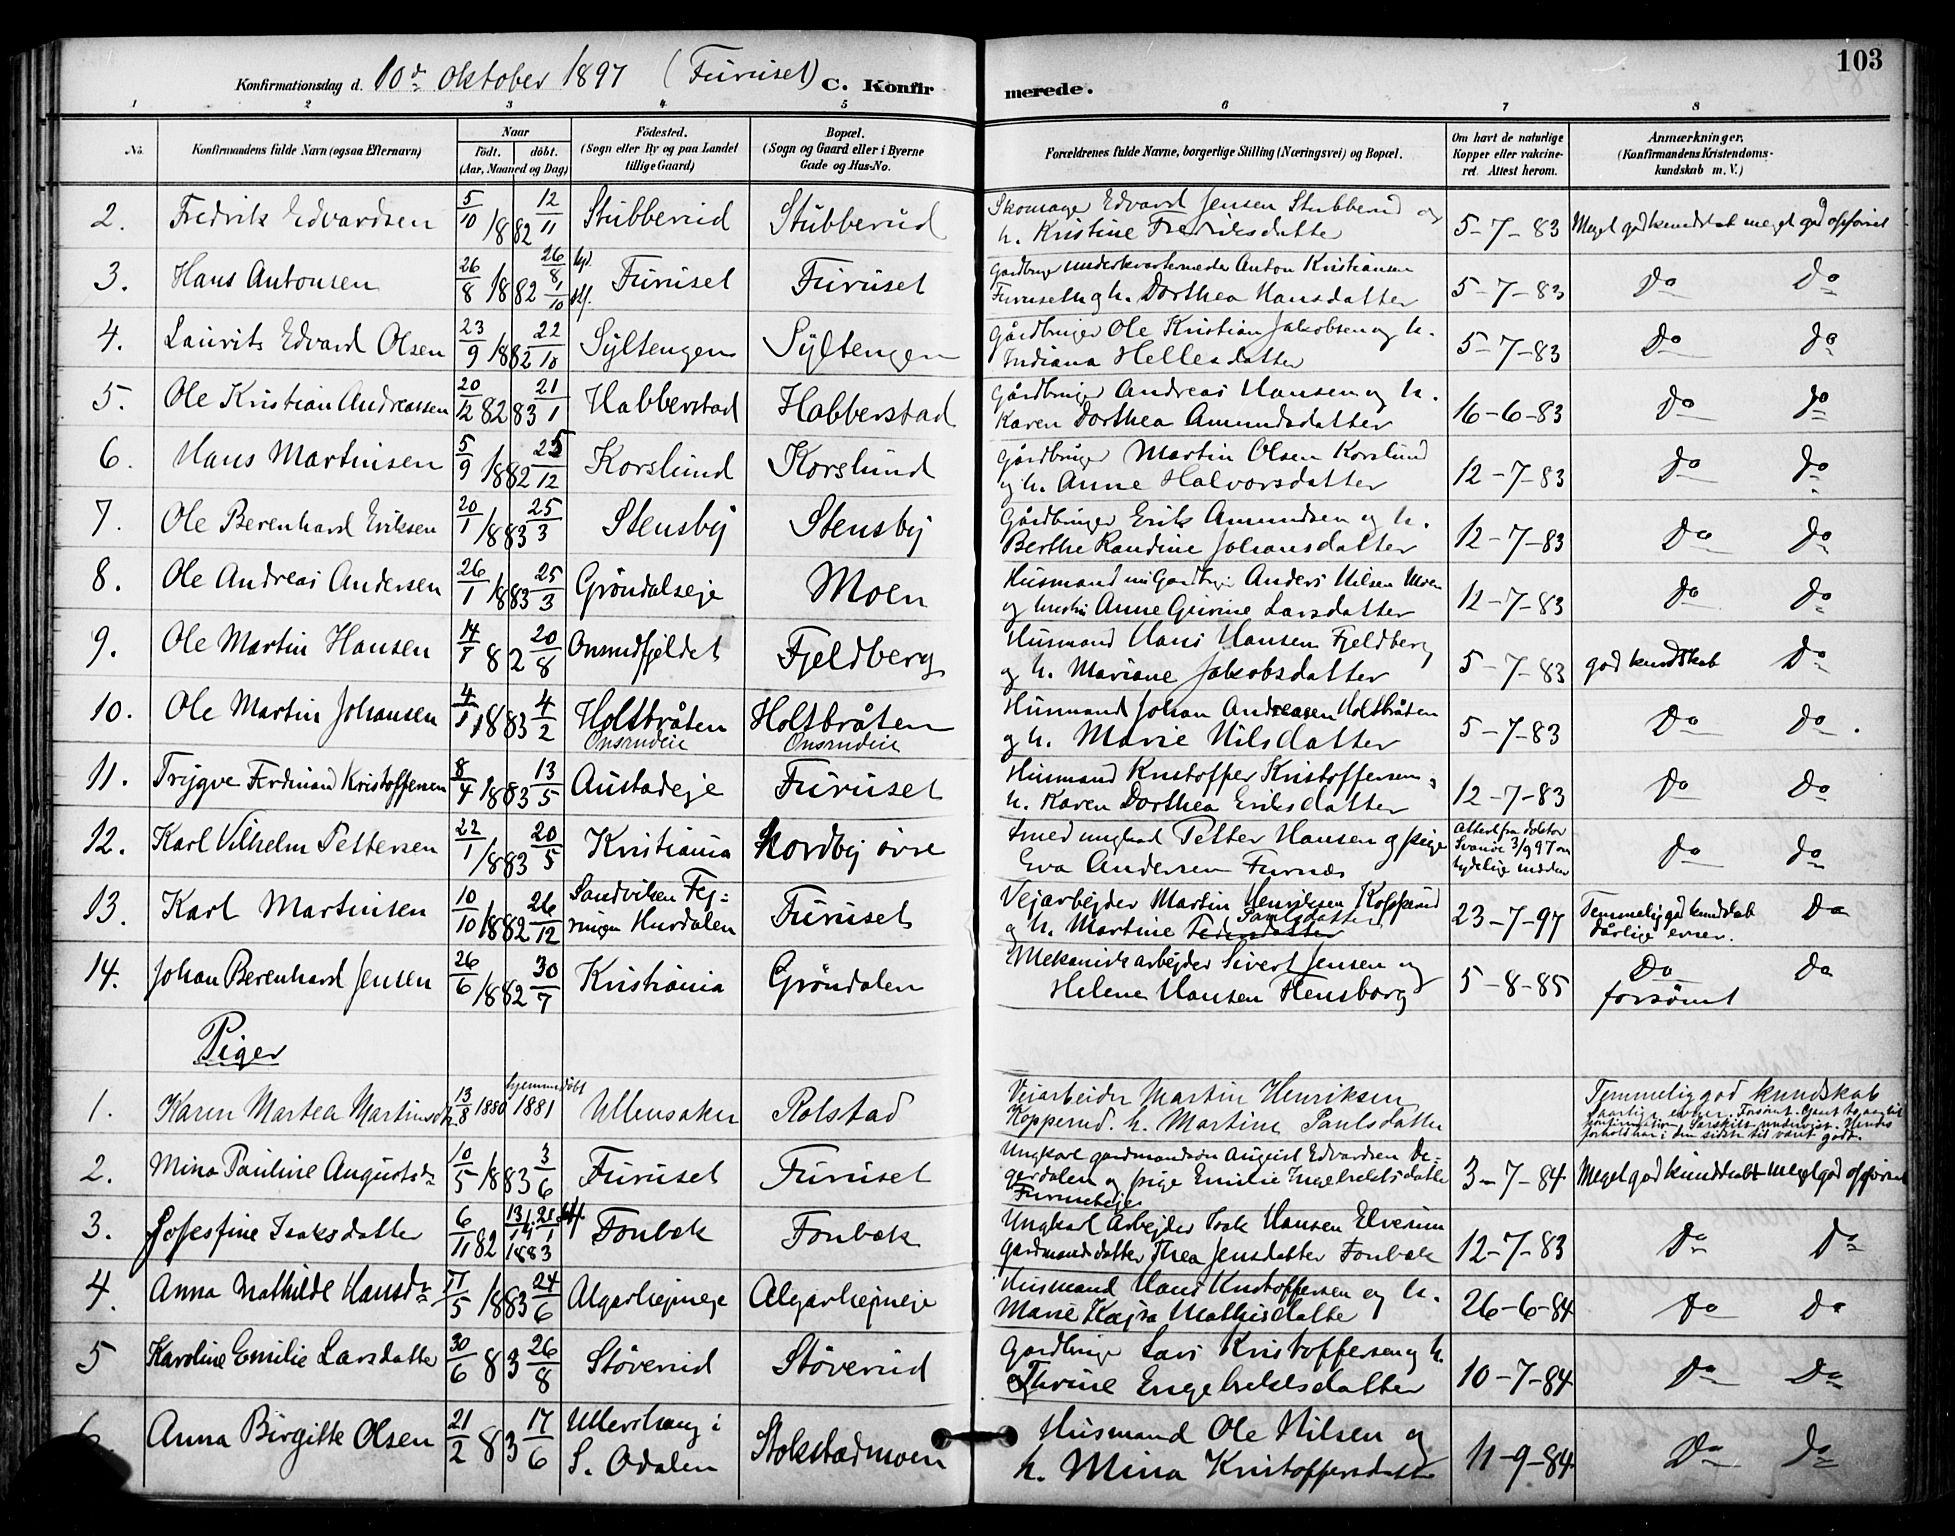 103
Konfirmationsdag d. 10de oktober 1897 (Furuset) C. Konfir merede.
1 2 3 4 5 6 7 8
No. Konfirmandens fulde Navn (ogsaa Efternavn) Naar Födt. döbt. (Aar, Maaned og Dag) Födested. (Sogn eller By og paa Landet tillige Gaard) Bopæl. (Sogn og Gaard eller i Byerne Gade og Hus-No. Forældrenes fulde Navne, borgerlige Stilling (Næringsvei) og Bopæl. Om havt de naturlige Kopper eller vakcineret. Attest herom. Anmærkninger, (Konfirmandens Kristendomskundskab m. V.)
2. Fredrik Edvardsen 5/10 1882 12/11 Stubberud Stubberud Skomager Edvard Jensen Stubberud og
h. Kristine Fredriksdatter 5-7-83 Meget god kundskab meget god opførsel
3. Hans Antonsen 26/8 1882 26/8 1/10 Furuset Furuset Gardbruger underkvartermester Anton Kristiansen
Furuseth og h. Dorthea Hansdatter 5-7-83 Do Do
4. Laurits Edvard Olsen 23/9 1882 22/10 Syltengen Syltengen Gårdbruger Ole Kristian Jakobsen og h.
Indiana Hellesdatter 5-7-83 Do Do
5. Ole Kristian Andreassen 20/12 82 83 21/1 Habberstad Habberstad Gårdbruger Andreas Hansen og h.
Karen Dorthea Amundsdatter 16-6-83 Do Do
6. Hans Martinsen 5/9 1882 25/12 Korslund Korslund Gårdbruger Martin Olsen Korslund
og h. Anne Halvorsdatter 12-7-83 Do Do
7. Ole Berenhard Eriksen 20/1 1883 25/3 Stensby Stensby Gårdbruger Erik Amundsen og h.
Berthe Randine Johansdatter 12-7-83 Do Do
8. Ole Andreas Andersen 26/1 1883 25/3 Gröndalseje Moen Husmand nu Gardbruger Anders Nilsen Moen
og hustru Anne Gurine Larsdatter 12-7-83 Do Do
9. Ole Martin Hansen 14/ 82 20/8 Onsrudfjeldet Fjeldberg Husmand Hans Hansen Fjeldberg
og h. Mariane Jakobsdatter 5-7-83 god kundskab Do
10. Ole Martin Johansen 4/1 1883 4/2 Holtbråten Holtbråten Husmand Johan Andreasen Holtbråten
Onsrudeie Onsrudeie og h. Marie Nilsdatter 5-7-83 Do Do
11. Trygve Ferdinand Kristoffersen 8/4 1883 13/5 Austadeje Furuset Husmand Kristoffer Kristoffersen
h. Karen Dorthea Eriksdatter 12-7-83 Do Do
12. Karl Vilhelm Pettersen 22/1 1883 20/5 Kristiania Nordby övre Smed ungkarl Petter Hansen og pige
Eva Andersen Furnæs Attest fra doktor 3/9 97 om tydelige mærker Do Do
13. Karl Martinsen 10/10 1882 26/12 Sandviken Fej=
ringen Hurdalen Furuset Vejarbejder Martin Henriksen Kopperud
og h. Martine Paulsdatter 23-7-97 Temmelig god kundskab
dårlige evner. Do
14. Johan Berenhard Jensen 26/6 1882 30/7 Kristiania Gröndalen Mekanisk arbejder Sivert Jensen og
Helene Hansen Hensborg 5-8-85 Do
forsømt Do
Piger
1. Karen Martea Martinsdtr 13/8 1880 hjemmedöbt 1881 Ullensaker Rolstad Vejarbeider Martin Henriksen
Kopperud. h. Martine Paulsdatter Temmelig god kundskab
2. Mina Pauline Augustsdr 10/5 1883 3/6 Furuset Furuset Ungkarl gardmandssön August Edvardsen De=
gerdalen og pige Emilie Ingebretsdatter
Furuseteje 3-7-84 Meget god kundskab Meget god opførsel
3. Josefine Isaksdatter 6/11 82 1883 Fonbæk Fonbæk Ungkarl Arbejder Isak Hansen Elverum
Gardmandsdatter Thea Jensdatter Fonbæk 12-7-83 Do Do
4. Anna Mathilde Hansdr 17/5 1883 24/6 Algarhejmeje Algarhejmeje Husmand Hans Kristoffersen og h.
Marie Kajsa Mathisdatter 26-6-84 Do Do
5 Karoline Emilie Larsdatter 30/6 83 26/8 Stöverud Stöverud Gardbruger Lars Kristoffersen og h.
Thrine Engebretsdatter 10-7-84 Do Do
6. Anna Birgitte Olsen 21/2 83 17/6 Ullershaug i
S. Odalen Stokstadmoen Husmand Ole Nilsen og
h. Mina Kristoffersdatter 11-9-84 Do Do